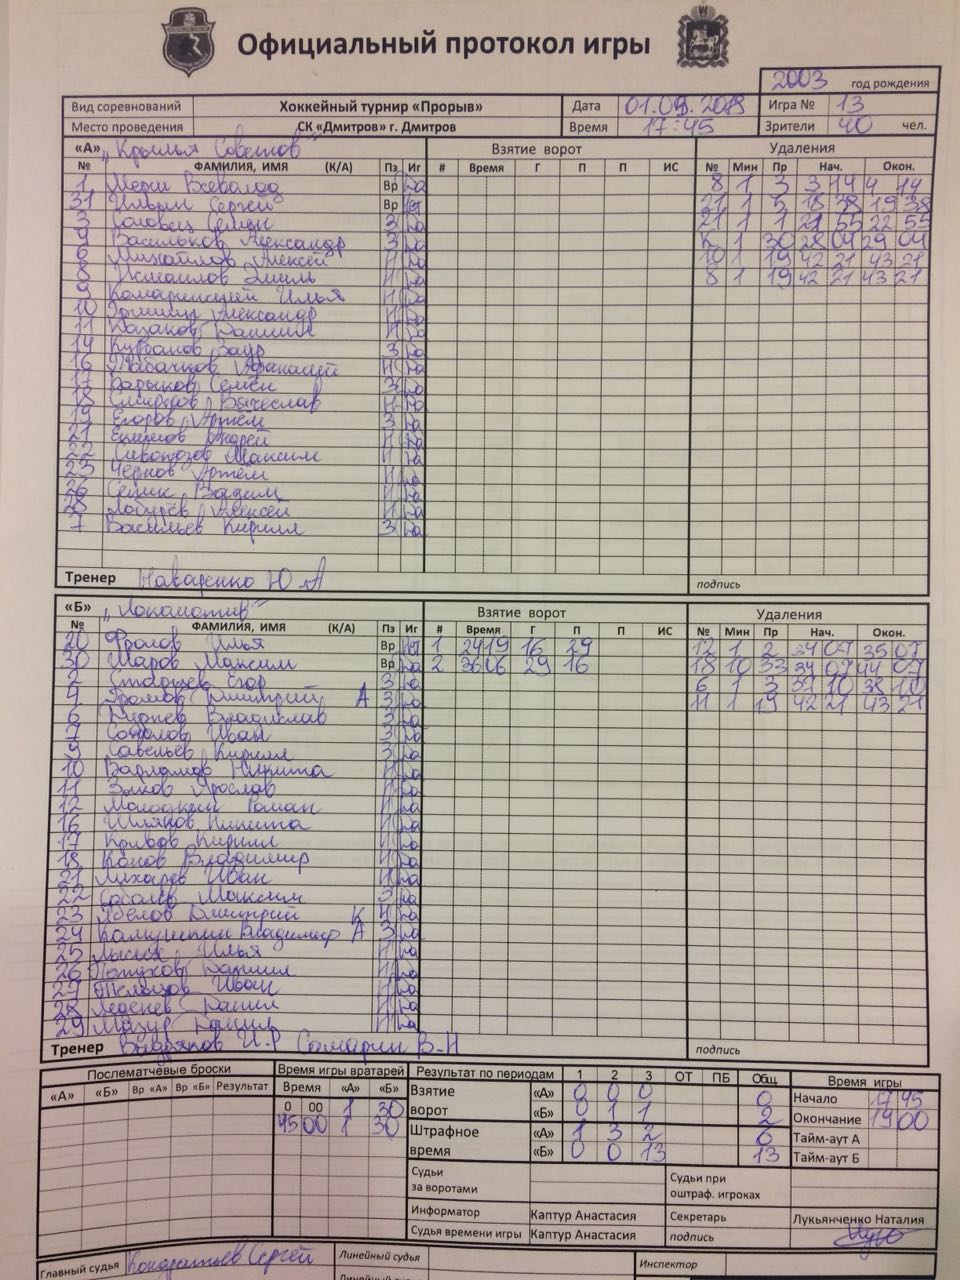 Официальный протокол игры
2003 год рождения
Вид соревнований Хоккейный турнир «Прорыв» Дата 2019 Игра № 13
Место проведения СК «Дмитров» г. Дмитров Время 17:45 Зрители 40 чел.
«А» „Крылья Советов" Взятие ворот Удаления
№ ФАМИЛИЯ, ИМЯ (К/А) Пз Иг # Время Г П П ИС № Мин Пр Нач. Окон.
1 Всеволод Вр Да 8 1 3 3 44 4 44
31 Ильин Сергей Вр Нет 21 1 5 18 38 19 38
3 Соловец Семён З Да 21 1 1 21 55 22 55
9 Васильков Александр З Да К 1 30 28 04 29 04
6 Михайлов Алексей Н Да 10 1 19 42 21 43 21
8 Исмаилов Эмиль Н Да 8 1 19 42 21 43 21
9 Илья Н Да
10 Александр Н Да
11 Казаков Даниил Н Да
14 Курбанов Заур З Да
16 Табачков Афанасий Н Да
17 Барыков Семён З Да
18 Смирнов Вячеслав Н Да
19 Егоров Артём З Да
21 Андрей Н Да
22 Максим Н Да
23 Чернов Артём Н Да
26 Вадим Н Да
28 Алексей Н Да
7 Васильев Кирилл З Да
Тренер Ю.А подпись
«Б» „Локомотив" Взятие ворот Удаления
№ ФАМИЛИЯ, ИМЯ (К/А) Пз Иг # Время Г П П ИС № Мин Пр Нач. Окон.
20 Фролов Илья Вр Нет 1 24 19 16 29 12 1 2 34 07 35 07
30 Шаров Максим Вр Да 2 36 06 29 16 18 10 33 34 07 44 07
2 Егор З Да 6 1 3 37 10 38 10
4 Громов Дмитрий А З Да 11 1 19 42 21 43 21
6 Владислав З Да
7 Соколов Иван З Да
9 Савельев Кирилл З Да
10 Варламов Никита Н Да
11 Зыков Ярослав Н Да
12 Молодкин Роман Н Да
16 Шляков Никита Н Да
17 Кривов Кирилл Н Да
18 Конов Владимир Н Да
21 Лихарев Иван Н Да
22 Соболев Максим З Да
23 Дмитрий К Н Да
24 Владимир А З Да
25 Лысих Илья Н Да
26 Петухов Даниил Н Да
27 Иван Н Да
28 Данил Н Да
29 Мазур Данил Н Да
Тренер И.Р Самарин В.Н подпись
Послематчевые броски Время игры вратарей Результат по периодам 1 2 3 ОТ ПБ Общ Время игры
«А» «Б» Вр «А» Вр «Б» Результат Время «А» «Б» Взятие ворот «А» 0 0 0 0 Начало 17 45
0 00 1 30 «Б» 0 1 1 2 Окончание 19 00
45 00 1 30 Штрафное время «А» 1 3 2 6 Тайм-аут А
«Б» 0 0 13 13 Тайм-аут Б
Судьи за воротами Судьи при оштраф. игроках
Информатор Каптур Анастасия Секретарь Лукьянченко Наталия
Судья времени игры Каптур Анастасия подпись
Главный судья Кондратьев Сергей Линейный судья Инспектор
Линейный судья